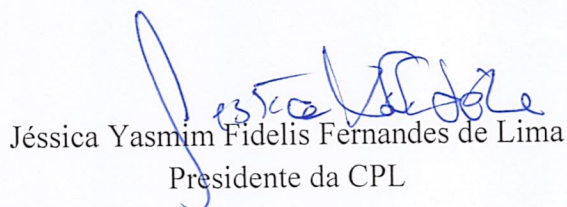 Jéssica
Jéssica Yasmim Fidelis Fernandes de Lima
Presidente da CPL